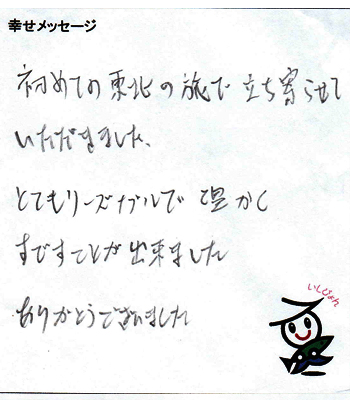 幸せメッセージ
初めての東北の旅で立ち寄らせて
いただきました、
とてもリーズナブルで温かく
すごすことが出来ました
ありがとうございました
いしぴょん